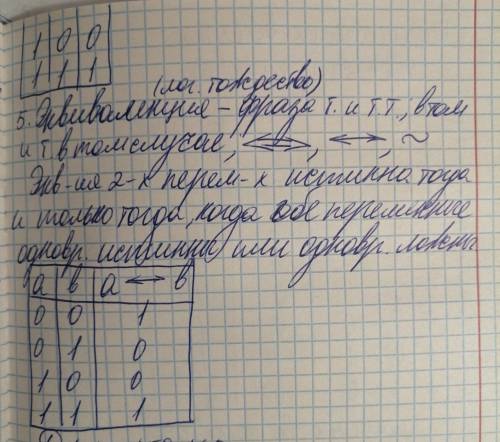 1 0 0
1 1 1
(лог. тождество)
5. Эквиваленция – фраза т. и т.т., в том
и т. в том случае, ⇔, ↔, ~
Экв-ия 2-х перем-х истинна тогда
и только тогда, когда обе переменные
одновр. истинны или одновр. ложны
а в а ↔ в
0 0 1
0 1 0
1 0 0
1 1 1